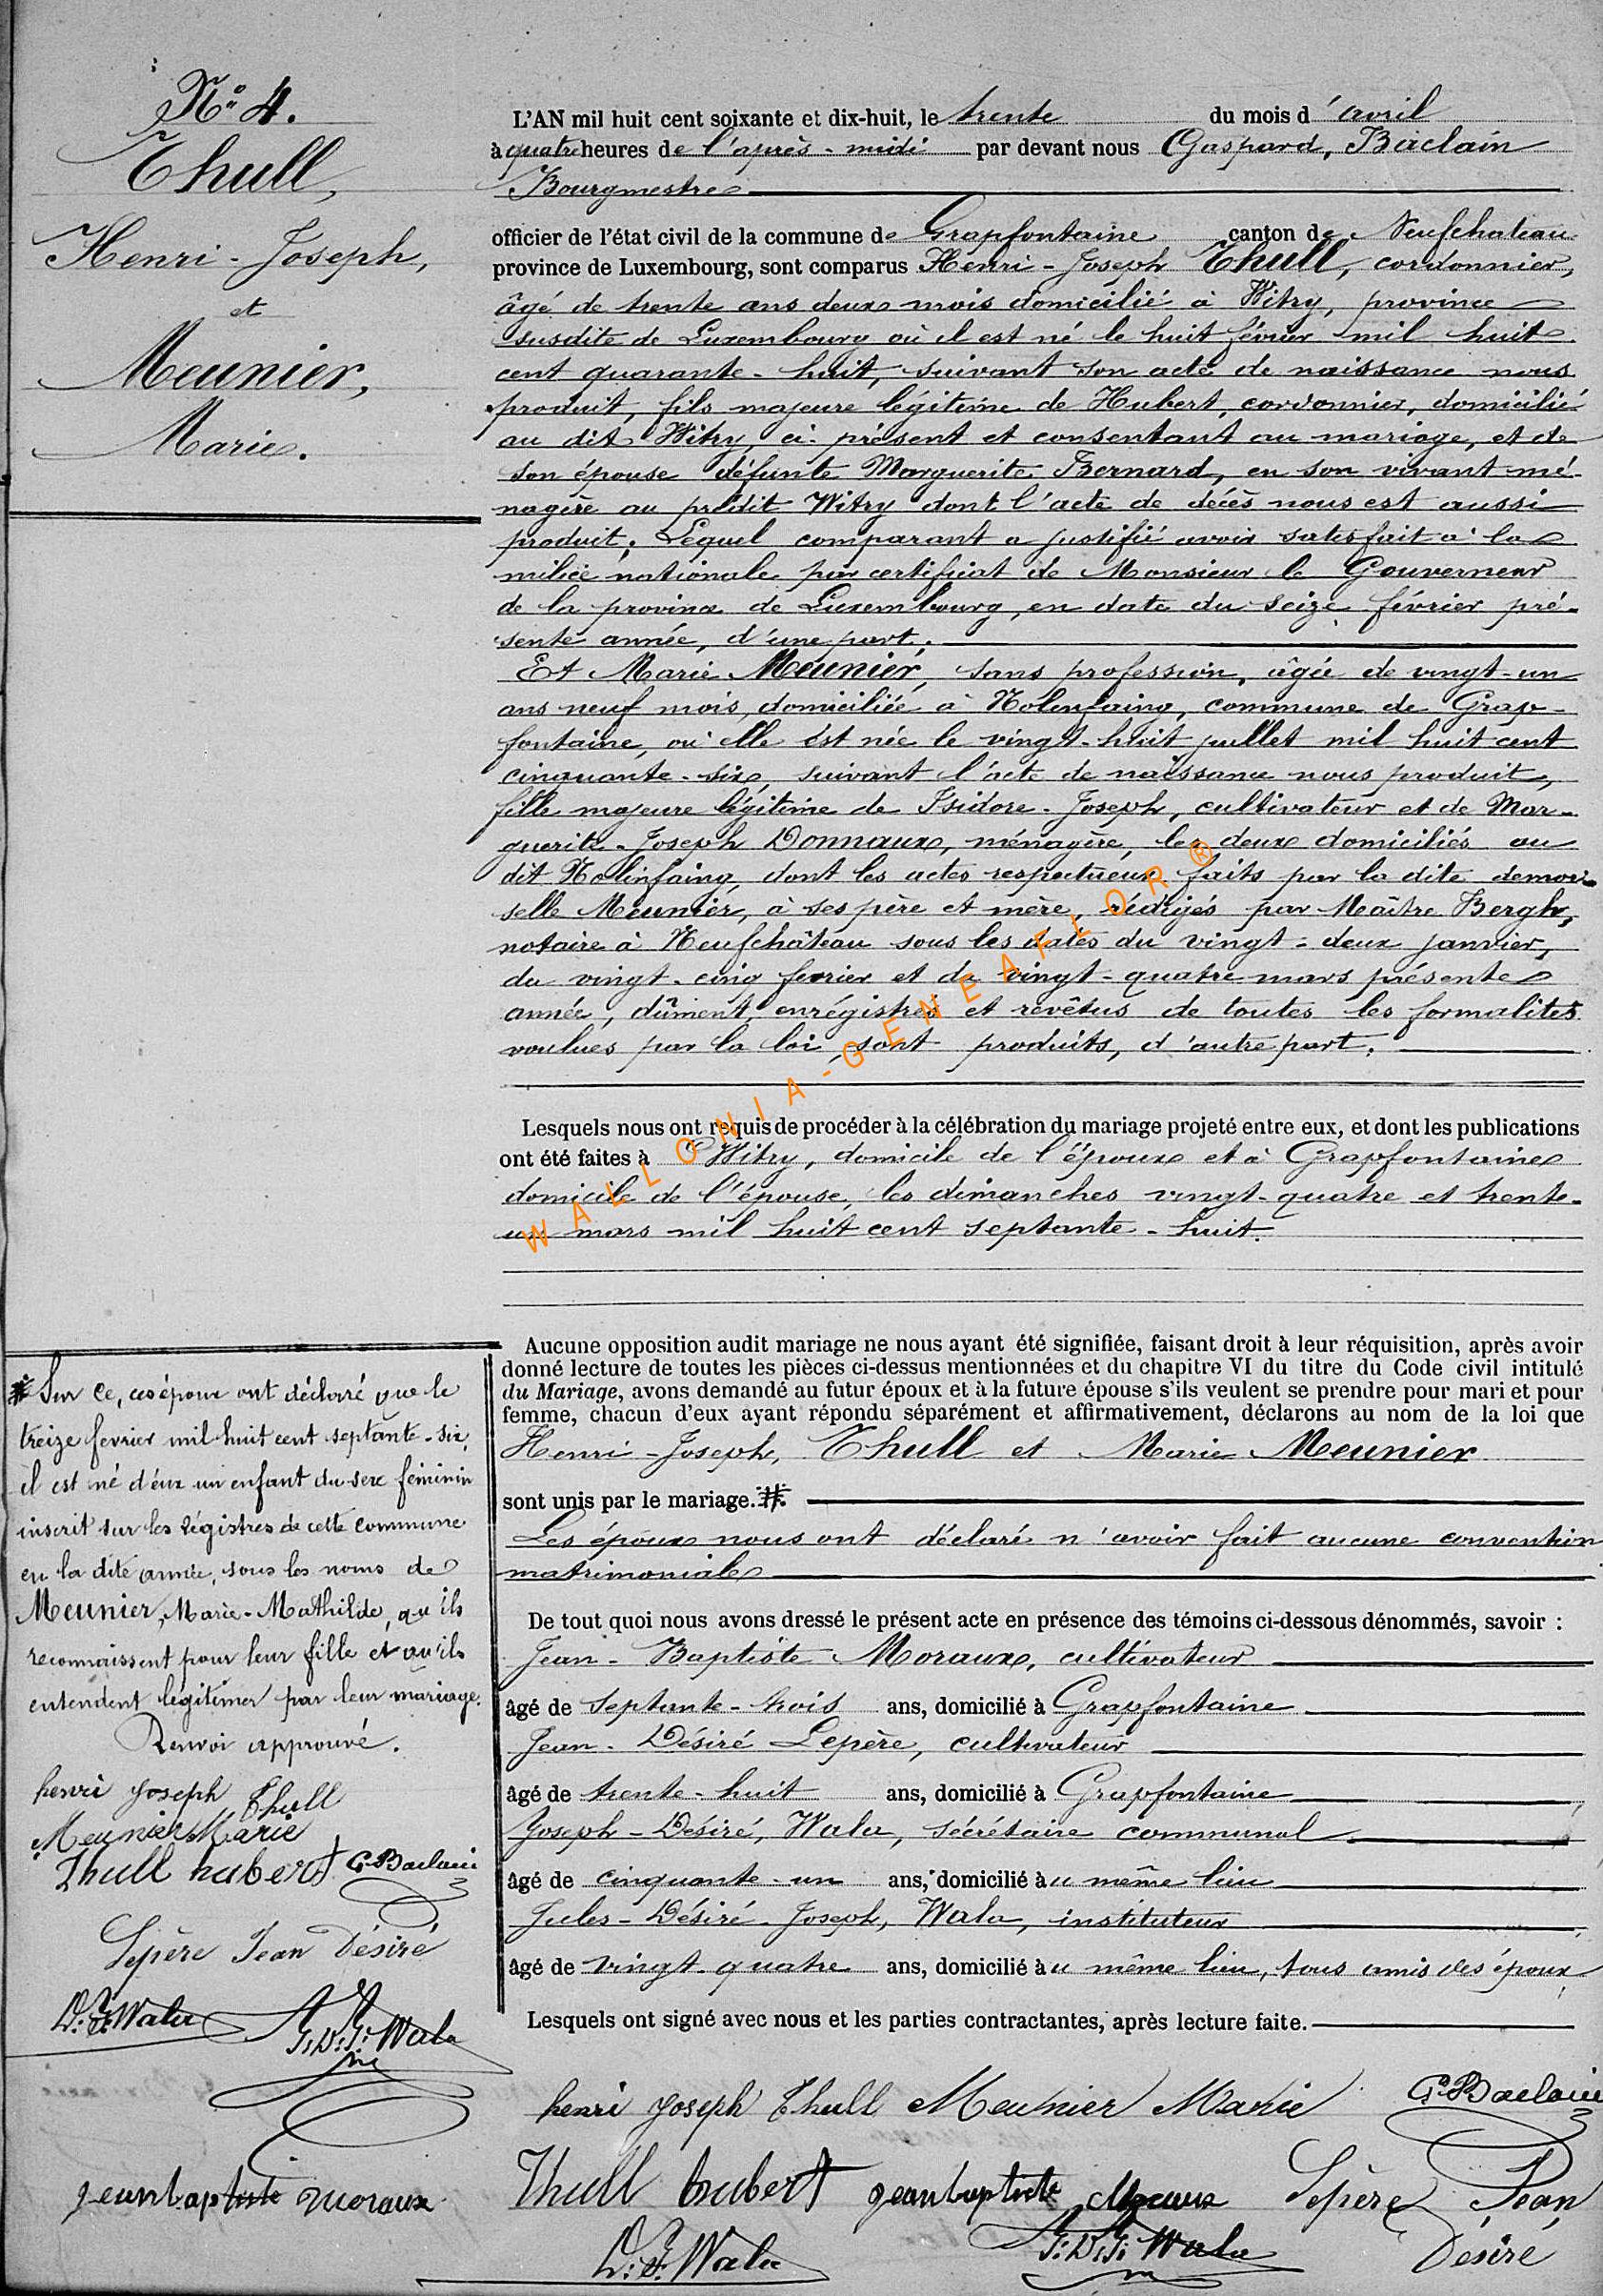 N° 4.
Thull,
Henri-Joseph,
et
Meunier,
Marie.
L'AN mil huit cent soixante et dix-huit, le trente du mois d'avril
à quatre heures de l'après-midi par devant nous Gaspard, Baclain
Bourgmestre
officier de l'état civil de la commune de Grapfontaine canton de Neufchateau
province de Luxembourg, sont comparus Henri-Joseph Thull, cordonnier,
âgé de trente ans deux mois domicilié à Witry, province
susdite de Luxembourg où il est né le huit février mil huit
cent quarante-huit, suivant son acte de naissance nous
produit, fils majeure légitime de Hubert, cordonnier, domicilié
au dit Witry, ci-présent et consentant au mariage, et de
son épouse défunte Marguerite Bernard, en son vivant mé-
nagère au prédit Witry dont l'acte de décès nous est aussi
produit; Lequel comparant a justifié avoir satisfait à la
milice nationale par certificat de Monsieur le Gouverneur
de la province de Luxembourg, en date du seize février pré-
sente année, d'une part.
Et Marie Meunier, sans profession, âgée de vingt-un
ans neuf mois, domiciliée à Nolinfaing, commune de Grap-
fontaine, où elle est née le vingt-huit juillet mil huit cent
cinquante-six, suivant l'acte de naissance nous produit,
fille majeure légitime de Isidore-Joseph, cultivateur et de Mar-
guerite-Joseph Donnaux, ménagère, les deux domiciliés au
dit Nolinfaing, dont les actes respectueux faits par la dite demoi-
selle Meunier, à ses père et mère, rédigés par Maître Bergh,
notaire à Neufchâteau sous les dates du vingt-deux janvier,
du vingt-cinq fevrier et du vingt-quatre mars présente
année, dûment enrégistrés et revêtus de toutes les formalités
voulues par la loi, sont produits, d'autre part.
Lesquels nous ont requis de procéder à la célébration du mariage projeté entre eux, et dont les publications
ont été faites à Witry, domicile de l'époux et à Grapfontaine
domicile de l'épouse, les dimanches vingt-quatre et trente-
un mars mil huit cent septante-huit.
WALLONIA-GENEAFLOR®
Aucune opposition audit mariage ne nous ayant été signifiée, faisant droit à leur réquisition, après avoir
donné lecture de toutes les pièces ci-dessus mentionnées et du chapitre VI du titre du Code civil intitulé
du Mariage, avons demandé au futur époux et à la future épouse s'ils veulent se prendre pour mari et pour
femme, chacun d'eux ayant répondu séparément et affirmativement, déclarons au nom de la loi que
Henri-Joseph, Thull et Marie Meunier
sont unis par le mariage. #.
Les époux nous ont déclaré n'avoir fait aucune convention
matrimoniale
De tout quoi nous avons dressé le présent acte en présence des témoins ci-dessous dénommés, savoir :
Jean-Baptiste Moraux, cultivateur
âgé de septante-trois ans, domicilié à Grapfontaine
Jean-Désiré Lepère, cultivateur
âgé de trente-huit ans, domicilié à Grapfontaine
Joseph-Désiré, Wala, sécrétaire communal
âgé de cinquante-un ans, domicilié au même lieu
Jules-Désiré-Joseph, Wala, instituteur
âgé de vingt-quatre ans, domicilié au même lieu, tous amis des époux
Lesquels ont signé avec nous et les parties contractantes, après lecture faite.
henri joseph Thull Meunier Marie G. Baclain
Thull hubert jeanbaptiste Moraux Lepère Jean
Désiré
D. J. Wala J. D. J. Wala
# Sur ce, ces époux ont déclaré que le
treize fevrier mil huit cent septante-six,
il est né d'eux un enfant du sexe féminin
inscrit sur les régistres de cette commune
en la dite année, sous les noms de
Meunier, Marie-Mathilde, qu'ils
reconnaissent pour leur fille et qu'ils
entendent légitimer par leur mariage.
Renvoi approuvé.
henri joseph Thull
Meunier Marie
Thull hubert G. Baclain
Lepère Jean Désiré
D. J. Wala J. D. J. Wala
jeanbaptiste moraux